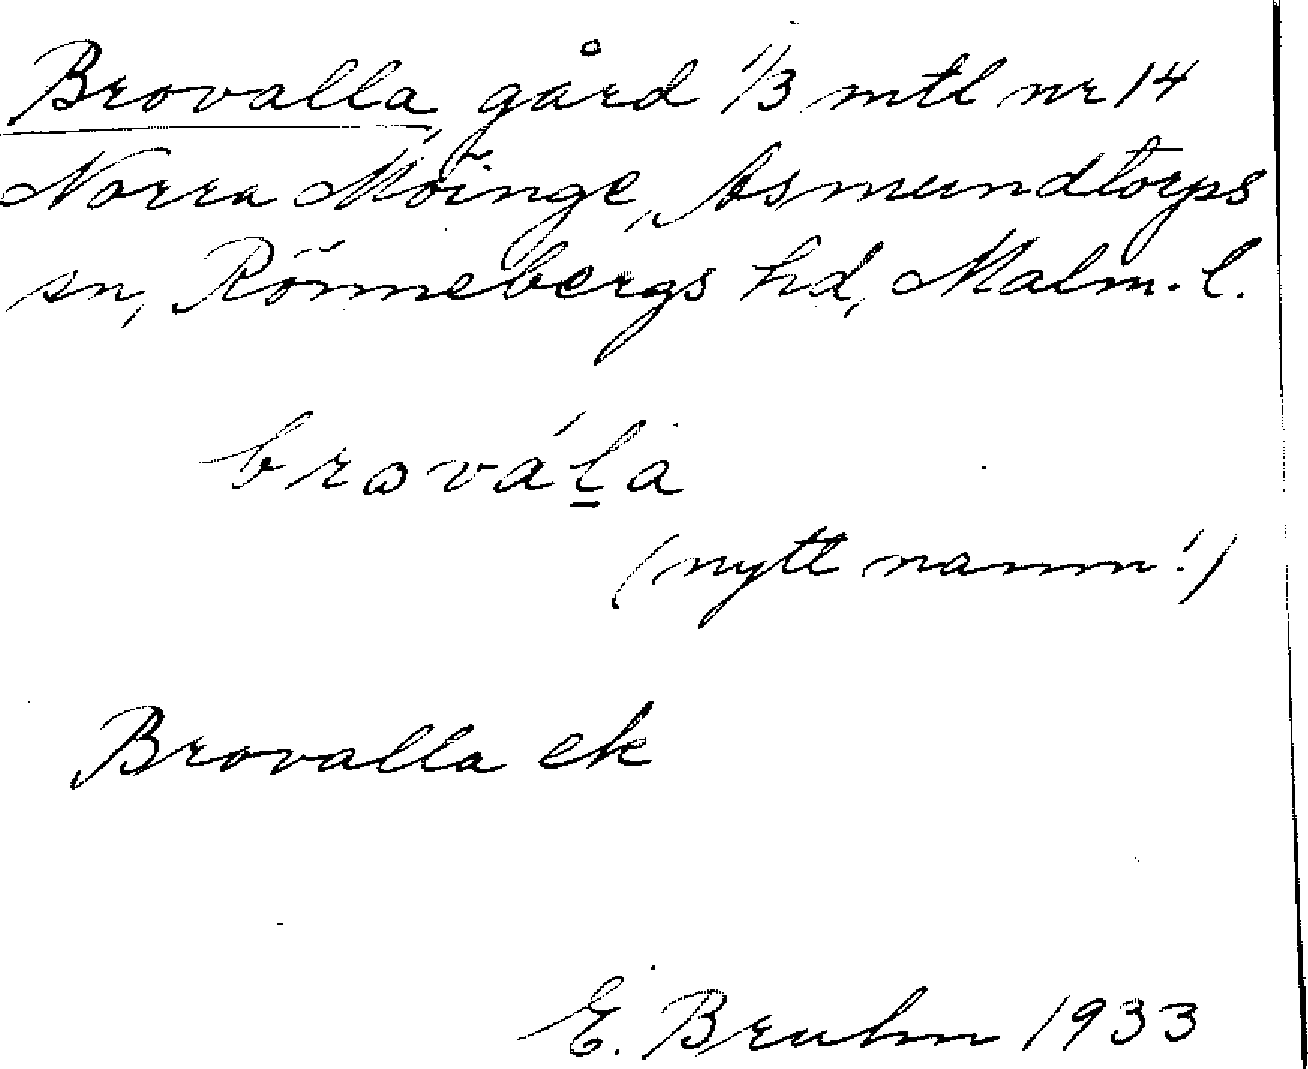 Brovalla, gård 1/3 mtl nr 14
Norra Möinge, Asmundtorps
sn, Rönnebergs hd, Malm. l.
brovál̲a
(nytt namn!)
Brovalla ek
E. Bruhn 1933